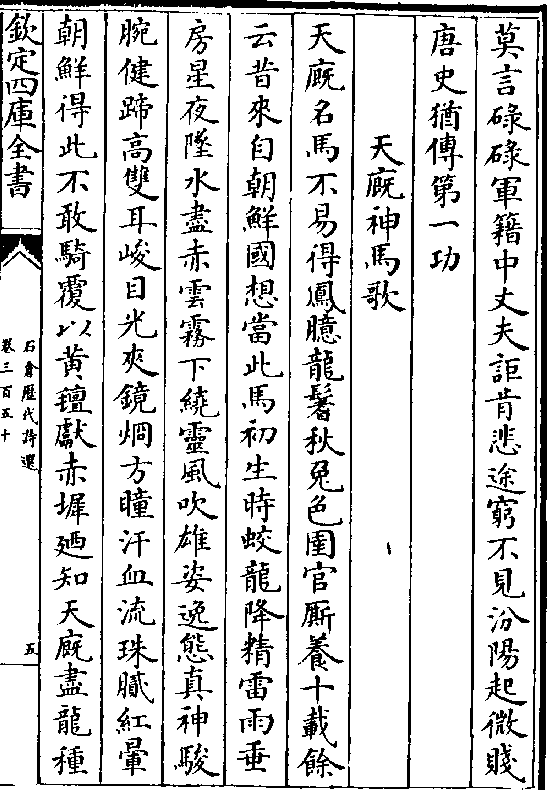 莫言碌碌軍籍中丈夫詎肯悲途窮不見汾陽起微賤
唐史猶傳第一功
天廐神馬歌
天廐名馬不易得鳳臆龍鬐秋兔色圉官厮養十載餘
云昔來自朝鮮國想當此馬初生時蛟龍降精雷雨垂
房星夜墜水盡赤雲霧下繞靈風吹雄姿逸態真神駿
腕健蹄高雙耳峻目光夾鏡炯方瞳汗血流珠膩紅暈
朝鮮得此不敢騎覆以黄𢄙獻赤墀廼知天廐盡龍種
欽定四庫全書
石倉歷代詩選
卷三百五十
五